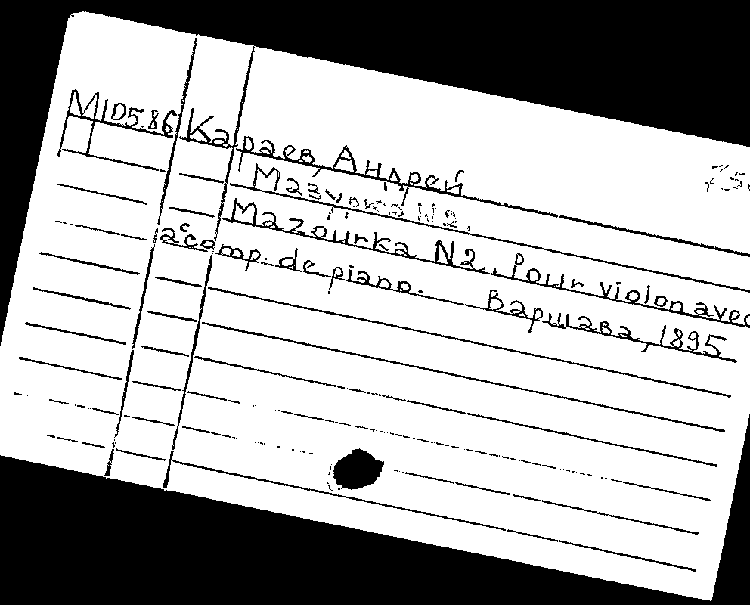 М1D586 Караев, Андрей
Мазурка N2.
Mazourka N2.. Pour violon avec
accomp. de piano. Варшава, 1895